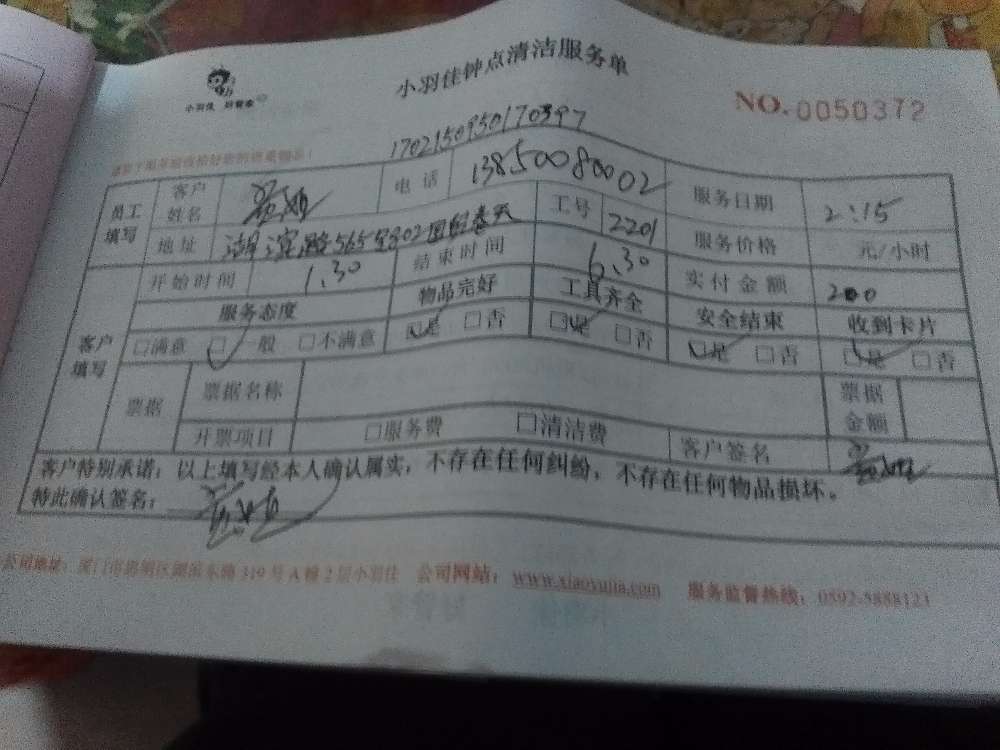 小羽佳 好管家
小羽佳钟点清洁服务单
NO. 0050372
1702150950170397
员工填写 客户姓名 电话 13850080002 服务日期 2.15
地址 湖滨 路565 工号 2201 服务价格 元/小时
开始时间 1.30 结束时间 6.30 实付金额 200
客户填写 服务态度 物品完好 工具齐全 安全结束 收到卡片
□满意 □一般 □不满意 □是 □否 □是 □否 □是 □否 □是 □否
票据 票据名称 票据金额
开票项目 □服务费 □清洁费 客户签名
客户特别承诺:以上填写经本人确认属实,不存在任何纠纷,不存在任何物品损坏。
特此确认签名:
公司地址:厦门市思明区湖滨东路319号A幢2层小羽佳 公司网站:www.xiaoyujia.com 服务监督热线:0592-5888123